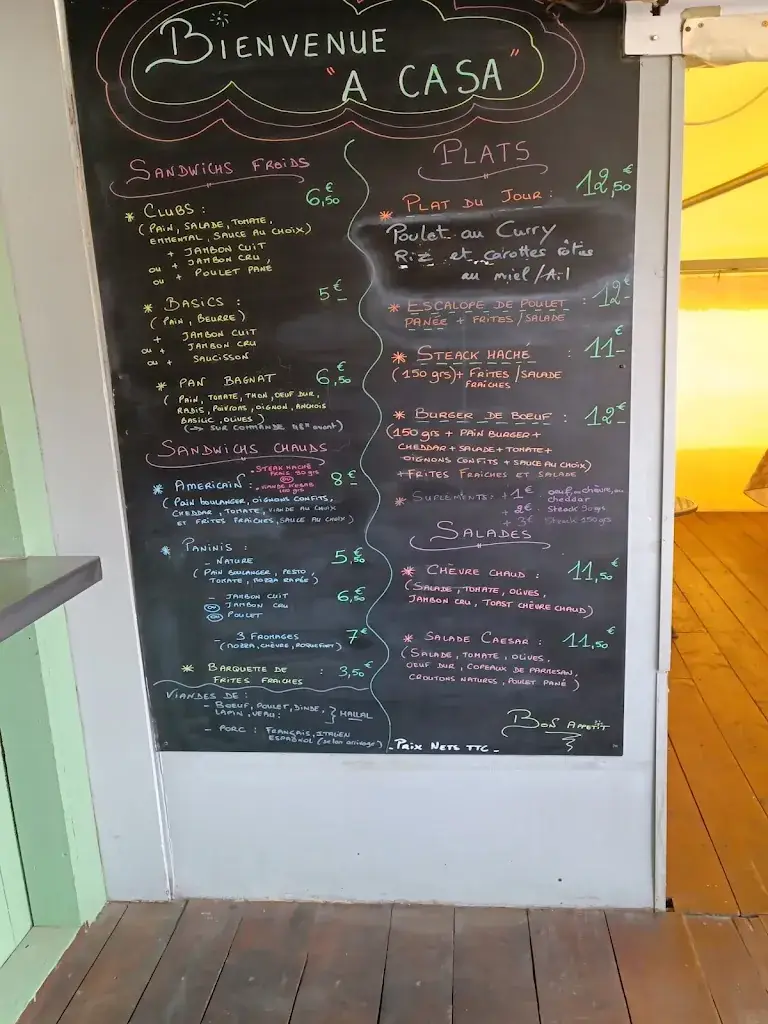 BIENVENUE
"A CASA"
SANDWICHS FROIDS
* CLUBS : 6,50€
(PAIN, SALADE, TOMATE,
EMMENTAL, SAUCE AU CHOIX)
+ JAMBON CUIT
ou + JAMBON CRU,
ou + POULET PANÉ
* BASICS : 5€-
(PAIN, BEURRE)
+ JAMBON CUIT
ou + JAMBON CRU
ou + SAUCISSON
* PAN BAGNAT 6,50€
(PAIN, TOMATE, THON, OEUF DUR,
RADIS, POIVRONS, OIGNON, ANCHOIS
BASILIC, OLIVES)
(-> SUR COMMANDE 48H avant)
SANDWICHS CHAUDS
* AMERICAIN : 8€-
- STEAK HACHÉ
FRAIS 90 grs
OU
- VIANDE KEBAB
100 grs
(PAIN BOULANGER, OIGNONS CONFITS,
CHEDDAR, TOMATE, VIANDE AU CHOIX
ET FRITES FRAÎCHES, SAUCE AU CHOIX)
* PANINIS :
- NATURE 5,50€
(PAIN BOULANGER, PESTO,
TOMATE, MOZZA RAPÉE)
- JAMBON CUIT 6,50€
OU JAMBON CRU
OU POULET
- 3 FROMAGES 7€
(MOZZA, CHÈVRE, ROQUEFORT)
* BARQUETTE DE : 3,50€
FRITES FRAÎCHES
VIANDES DE :
- BOEUF, POULET, DINDE,
LAPIN, VEAU : } HALLAL
- PORC : FRANÇAIS, ITALIEN
ESPAGNOL (selon arrivage)
PLATS
* PLAT DU JOUR : 12,50€
Poulet au Curry
Riz et carottes rôties
au miel/Ail
* ESCALOPE DE POULET : 12€-
PANÉE + FRITES/SALADE
* STEACK HACHÉ : 11€-
(150 grs) + FRITES/SALADE
FRAÎCHES
* BURGER DE BOEUF : 12€-
(150 grs + PAIN BURGER +
CHEDDAR + SALADE + TOMATE +
OIGNONS CONFITS + SAUCE AU CHOIX)
+ FRITES FRAÎCHES ET SALADE
* SUPLEMENTS : + 1€ oeuf, ou chèvre, ou
cheddar
+ 2€ Steack 90 grs
+ 3€ Steack 150 grs
SALADES
* CHÈVRE CHAUD : 11,50€
(SALADE, TOMATE, OLIVES,
JAMBON CRU, TOAST CHÈVRE CHAUD)
* SALADE CAESAR : 11,50€
(SALADE, TOMATE, OLIVES,
OEUF DUR, COPEAUX DE PARMESAN,
CROUTONS NATURES, POULET PANÉ)
BON APPETIT
- PRIX NETS TTC -